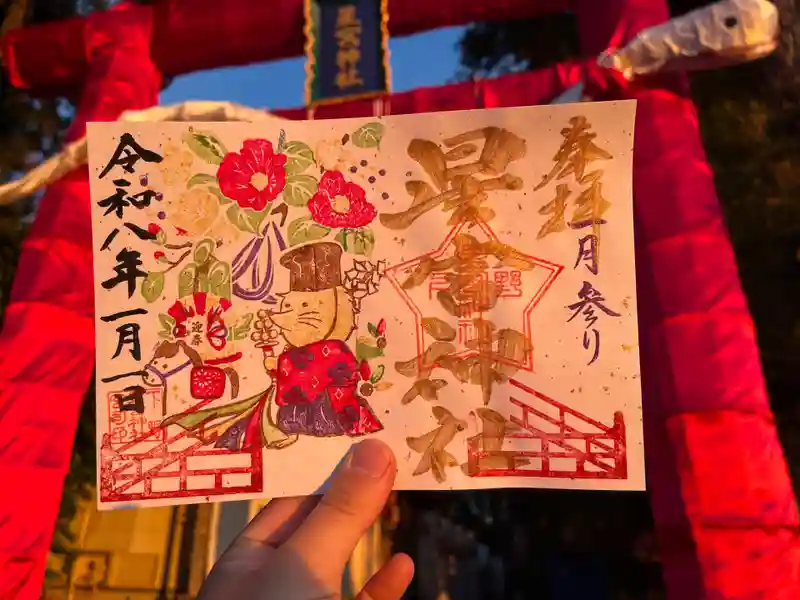 星宮神社
奉拝
一月参り
星宮神社
迎春
令和八年一月一日